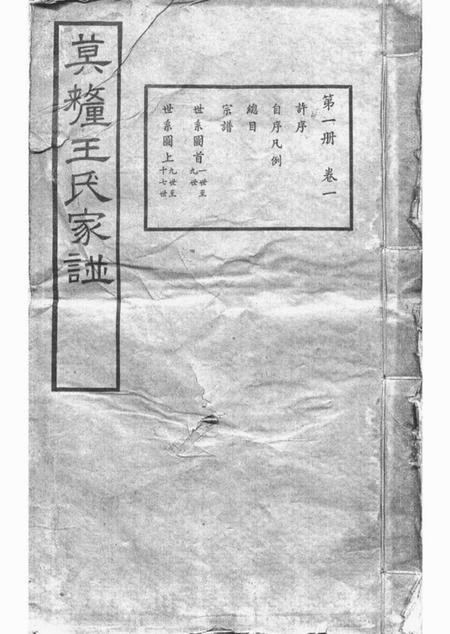 第一册 卷一
許序
自序凡例
總目
宗譜
世系圖首 一世至九世
世系圖上 九世至十七世
莫釐王氏家譜